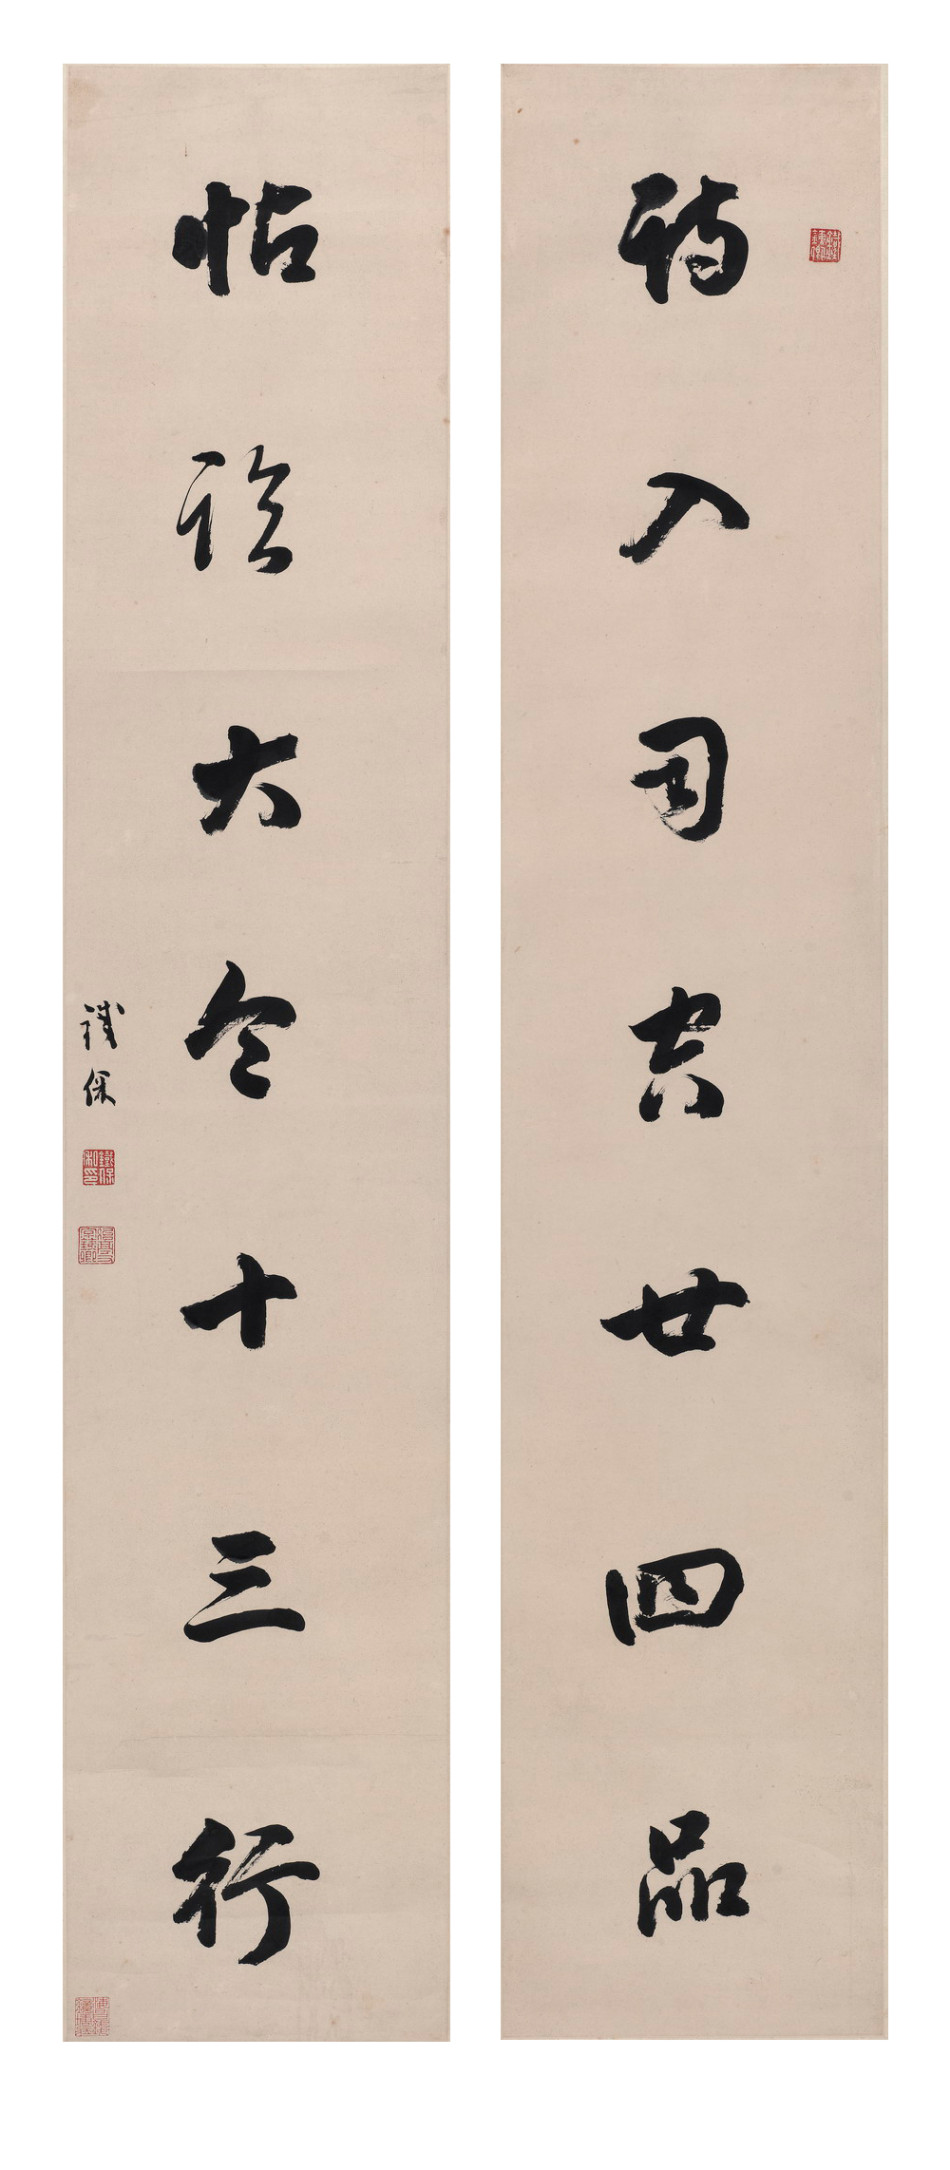 詩入司空廿四品
帖臨大令十三行
鐵保
鐵保私印